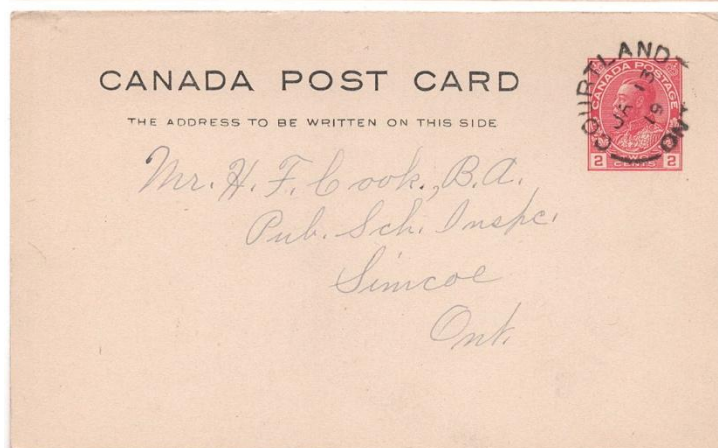 CANADA POST CARD
THE ADDRESS TO BE WRITTEN ON THIS SIDE
COURTLAND
ONT
JA 13
19
CANADA POSTAGE
2 TWO CENTS 2
Mr. H. F. Cook, B.A.
Pub. Sch. Inspc.
Simcoe
Ont.